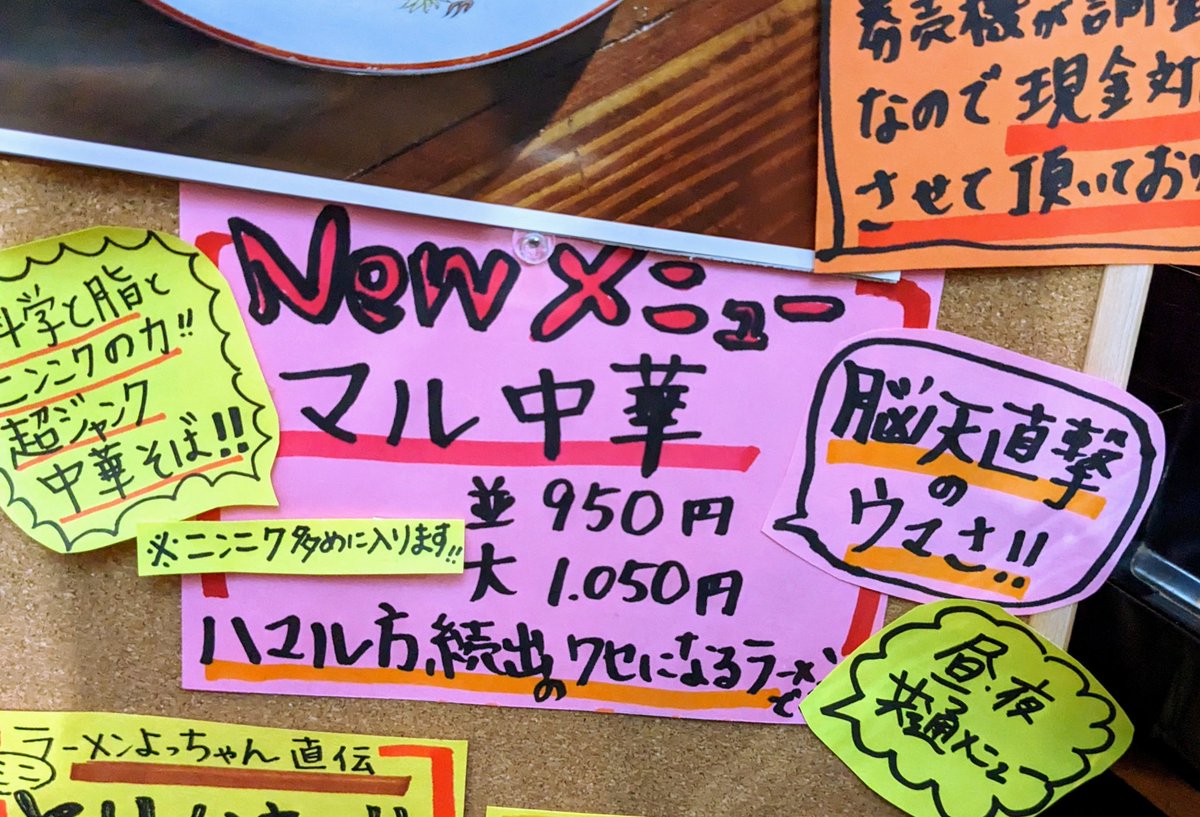 券売機が調整
なので現金対
させて頂いてお
Newメニュー
マル中華
並 950円
大 1.050円
ハマル方続出の
クセになるラーメン
科学と脂と
ニンニクの力!!
超ジャンク
中華そば!!
※ニンニク多めに入ります!!
脳天直撃
の
ウマさ!!
昼・夜
共通メニュー
ラーメンよっちゃん直伝